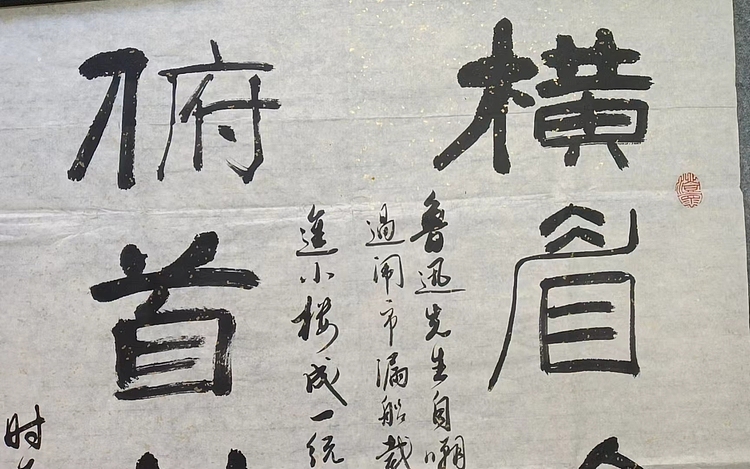 横眉
鲁迅先生自嘲
过闹市漏船载
进小楼成一统
俯首
时